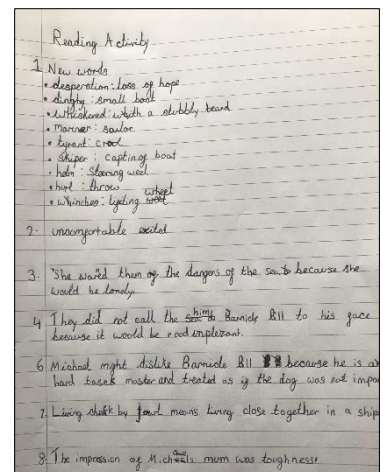 Reading Activity
1 New words
• desperation: loss of hope
• dinghy: small boat
• whiskered: with a stubbly beard
• mariner: sailor
• tyrant: cruel
• skiper: captin of boat
• helm: steering weel
• hurl: throw
• whinches: lifting wheel
2. uncomfortable exited
3. "She wared them of the dangers of the sea because she
would be lonely.
4 They did not call the him Barnicle Bill to his face
because it would be
6 Michael might dislike Barnicle Bill because he is a
hard task master and treated as if the dog was not impo
7. Living cheek by fowl means living close together in a ship
8. The impression of Micheals mum was toughness.